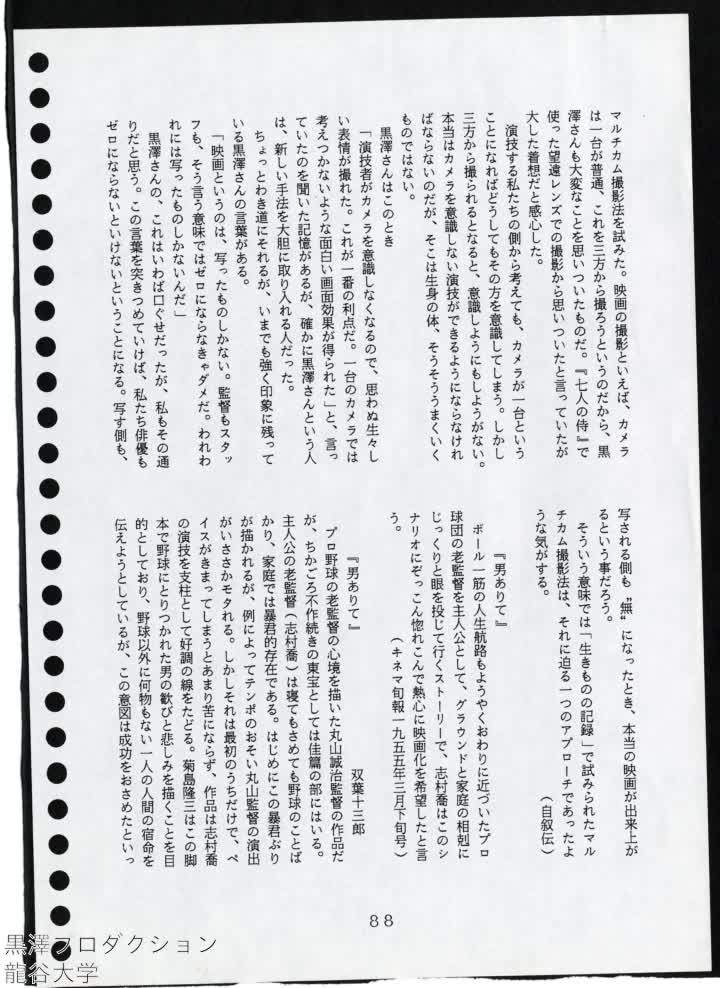 マルチカム撮影法を試みた。映画の撮影といえば、カメラ
は一台が普通、これを三方から撮ろうというのだから、黒
澤さんも大変なことを思いついたものだ。『七人の侍』で
使った望遠レンズでの撮影から思いついたと言っていたが
大した着想だと感心した。
演技する私たちの側から考えても、カメラが一台という
ことになればどうしてもその方を意識してしまう。しかし
三方から撮られるとなると、意識しようにもしようがない。
本当はカメラを意識しない演技ができるようにならなけれ
ばならないのだが、そこは生身の体、そうそううまくいく
ものではない。
黒澤さんはこのとき
「演技者がカメラを意識しなくなるので、思わぬ生々し
い表情が撮れた。これが一番の利点だ。一台のカメラでは
考えつかないような面白い画面効果が得られた」と、言っ
ていたのを聞いた記憶があるが、確かに黒澤さんという人
は、新しい手法を大胆に取り入れる人だった。
ちょっとわき道にそれるが、いまでも強く印象に残って
いる黒澤さんの言葉がある。
「映画というのは、写ったものしかない。監督もスタッ
フも、そう言う意味ではゼロにならなきゃダメだ。われわ
れには写ったものしかないんだ」
黒澤さんの、これはいわば口ぐせだったが、私もその通
りだと思う。この言葉を突きつめていけば、私たち俳優も
ゼロにならないといけないということになる。写す側も、
写される側も〝無〟になったとき、本当の映画が出来上が
るという事だろう。
そういう意味では「生きものの記録」で試みられたマル
チカム撮影法は、それに迫る一つのアプローチであったよ
うな気がする。
（自叙伝）
『男ありて』
ボール一筋の人生航路もようやくおわりに近づいたプロ
球団の老監督を主人公として、グラウンドと家庭の相剋に
じっくりと眼を投じて行くストーリーで、志村喬はこのシ
ナリオにぞっこん惚れこんで熱心に映画化を希望したと言
う。
（キネマ旬報一九五五年三月下旬号）
『男ありて』
双葉十三郎
プロ野球の老監督の心境を描いた丸山誠治監督の作品だ
が、ちかごろ不作続きの東宝としては佳篇の部にはいる。
主人公の老監督（志村喬）は寝てもさめても野球のことば
かり、家庭では暴君的存在である。はじめにこの暴君ぶり
が描かれるが、例によってテンポのおそい丸山監督の演出
がいささかモタれる。しかしそれは最初のうちだけで、ペ
イスがきまってしまうとあまり苦にならず、作品は志村喬
の演技を支柱として好調の線をたどる。菊島隆三はこの脚
本で野球にとりつかれた男の歓びと悲しみを描くことを目
的としており、野球以外に何物もない一人の人間の宿命を
伝えようとしているが、この意図は成功をおさめたといっ
88
黒澤プロダクション
龍谷大学